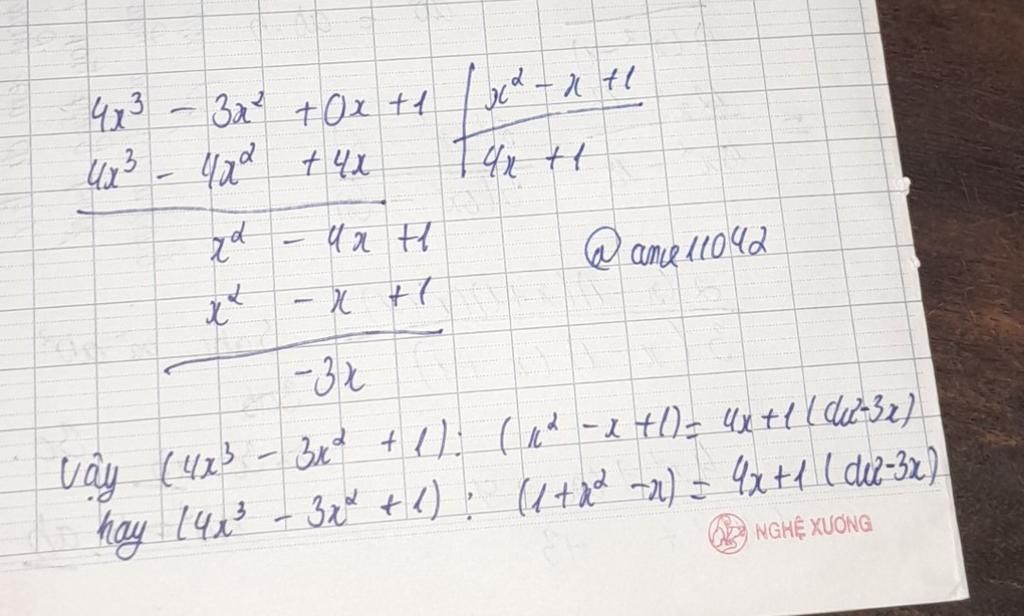 4x³ - 3x² + 0x + 1 | x² - x + 1
4x³ - 4x² + 4x | 4x + 1
x² - 4x + 1
@ame11042
x² - x + 1
-3x
Vậy (4x³ - 3x² + 1) : (x² - x + 1) = 4x + 1 (dư -3x)
hay (4x³ - 3x² + 1) : (1 + x² - x) = 4x + 1 (dư -3x)
NGHỆ XƯƠNG